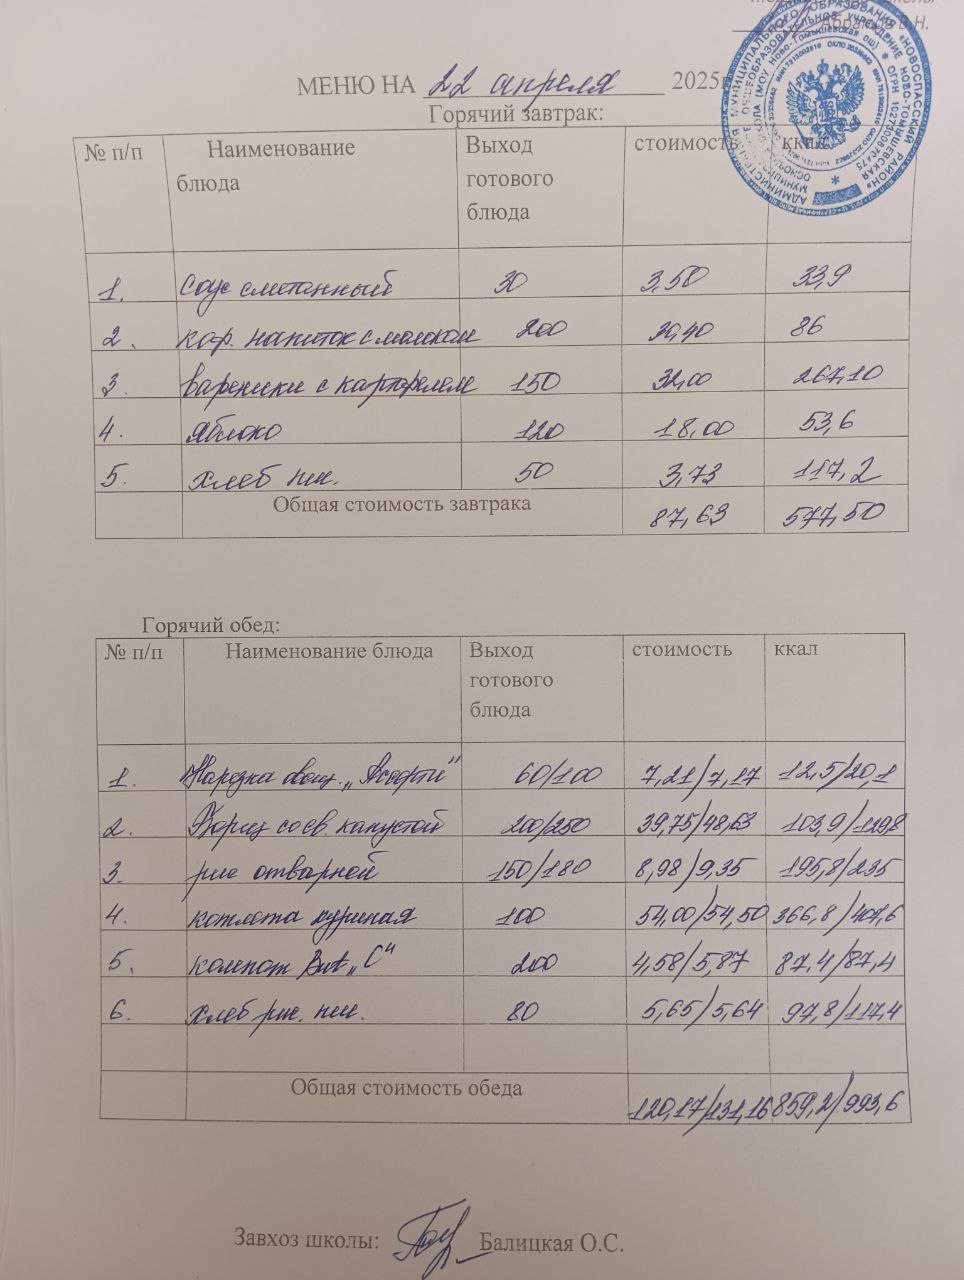 Абрамов В.Н.
МЕНЮ НА 22 апреля 2025г
Горячий завтрак:
№ п/п Наименование блюда Выход готового блюда стоимость ккал
1. Соус сметанный 30 3,50 33,9
2. коф. напиток с молоком 200 30,40 86
3 вареники с картофелем 150 32,00 267,10
4. Яблоко 120 18,00 53,6
5. Хлеб пш. 50 3,73 117,2
Общая стоимость завтрака 87,63 577,50
Горячий обед:
№ п/п Наименование блюда Выход готового блюда стоимость ккал
1. Нарезка овощ. „Ассорти" 60/100 7,21/7,17 12,5/20,1
2. Борщ со св. капустой 200/250 39,75/48,63 103,9/129,8
3. рис отварной 150/180 8,98/9,35 195,8/235
4. котлета куриная 100 54,00/54,50 366,8/407,6
5. компот Вит „С" 200 4,58/5,87 87,4/87,4
6. Хлеб рж. пш. 80 5,65/5,64 97,8/117,4
Общая стоимость обеда 120,17/131,16 859,2/993,6
Завхоз школы: Балицкая О.С.